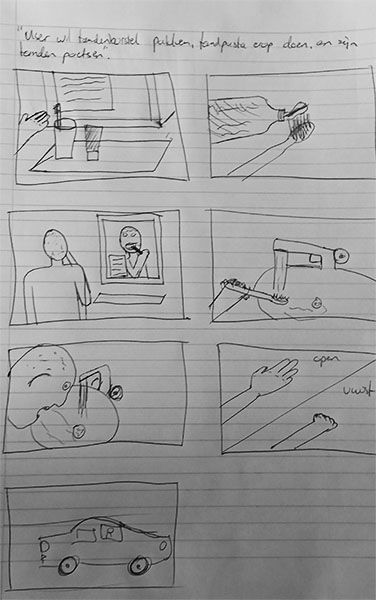 "User wil tandenborstel pakken, tandpasta erop doen, en zijn
tanden poetsen".
open
vuist